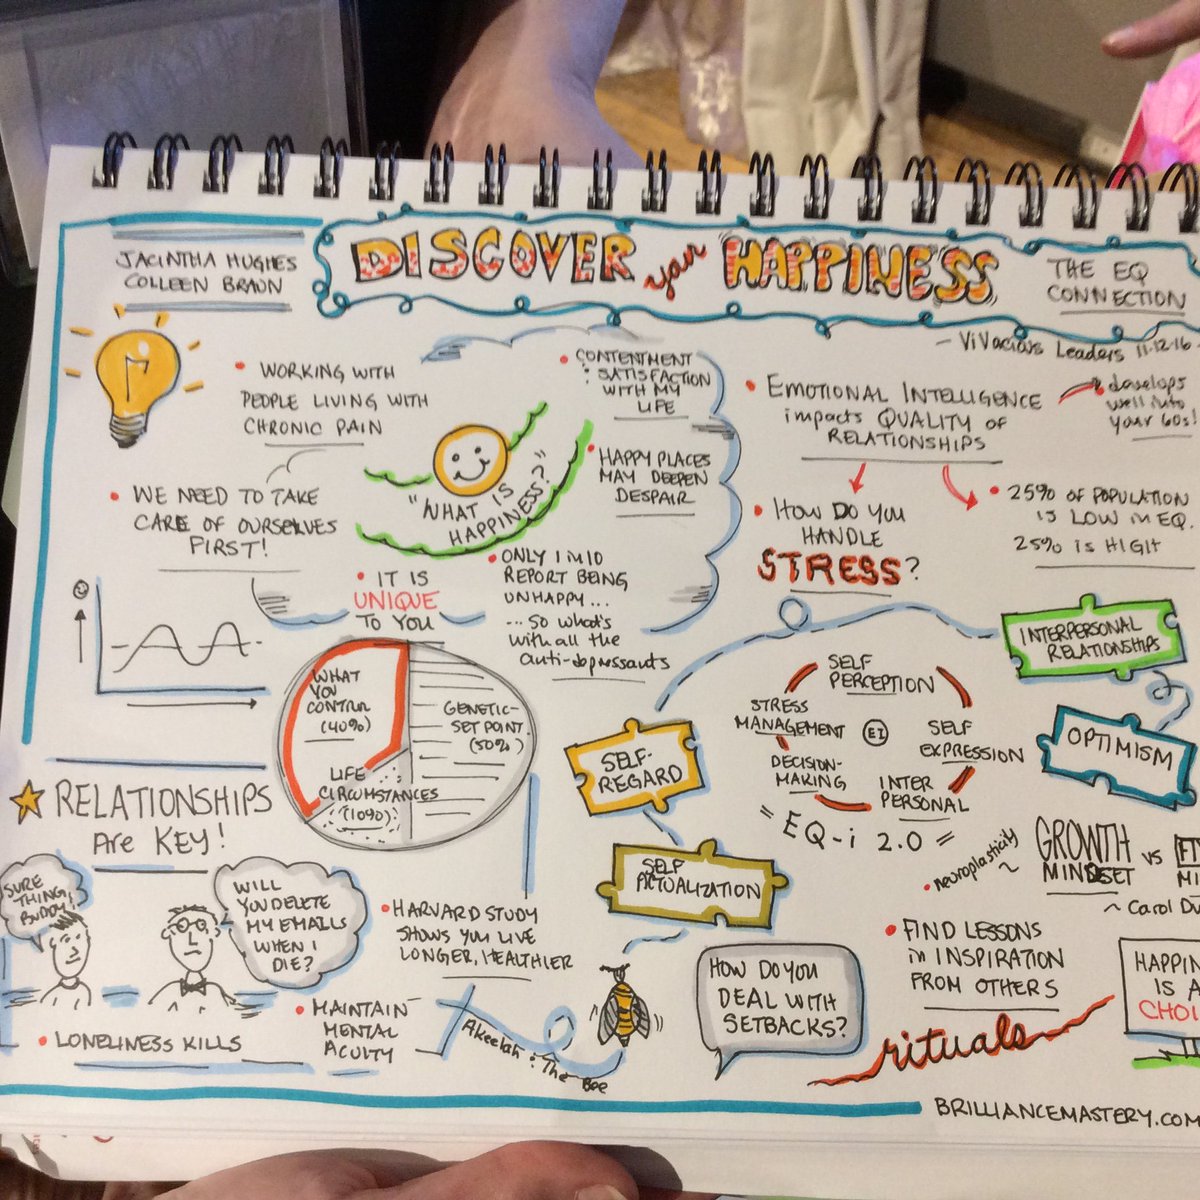 JACINTHA HUGHES
COLLEEN BRAUN
DISCOVER your HAPPINESS
THE EQ
CONNECTION
- ViVacious Leaders 11.12.16 -
• WORKING WITH
PEOPLE LIVING WITH
CHRONIC PAIN
• WE NEED TO TAKE
CARE OF OURSELVES
FIRST!
"WHAT IS
HAPPINESS?"
• CONTENTMENT
: SATISFACTION
WITH MY
LIFE
• HAPPY PLACES
MAY DEEPEN
DESPAIR
• ONLY 1 IN 10
REPORT BEING
UNHAPPY...
... So what's
with all the
anti-depressants
• IT IS
UNIQUE
TO YOU
WHAT
YOU
CONTROL
(40%)
GENETIC-
SET POINT
(50%)
LIFE
CIRCUMSTANCES
(10%)
• EMOTIONAL INTELLIGENCE
impacts QUALITY OF
RELATIONSHIPS
develops
well into
your 60s!
• HOW DO YOU
HANDLE
STRESS?
• 25% OF POPULATION
IS LOW IN EQ.
25% IS HIGH
INTERPERSONAL
RELATIONSHIPS
OPTIMISM
SELF-
REGARD
SELF
ACTUALIZATION
SELF
PERCEPTION
SELF
EXPRESSION
INTER
PERSONAL
DECISION-
MAKING
STRESS
MANAGEMENT
EI
= EQ-i 2.0 =
RELATIONSHIPS
Are KEY!
SURE
THING,
BUDDY!
WILL
YOU DELETE
MY EMAILS
WHEN I
DIE?
• LONELINESS KILLS
• HARVARD STUDY
SHOWS YOU LIVE
LONGER, HEALTHIER
• MAINTAIN
MENTAL
ACUITY
Akeelah : The Bee
HOW DO YOU
DEAL WITH
SETBACKS?
• neuroplasticity ~
GROWTH
MINDSET
vs
~ Carol
• FIND LESSONS
in INSPIRATION
FROM OTHERS
rituals
IS A
BRILLIANCEMASTERY.COM